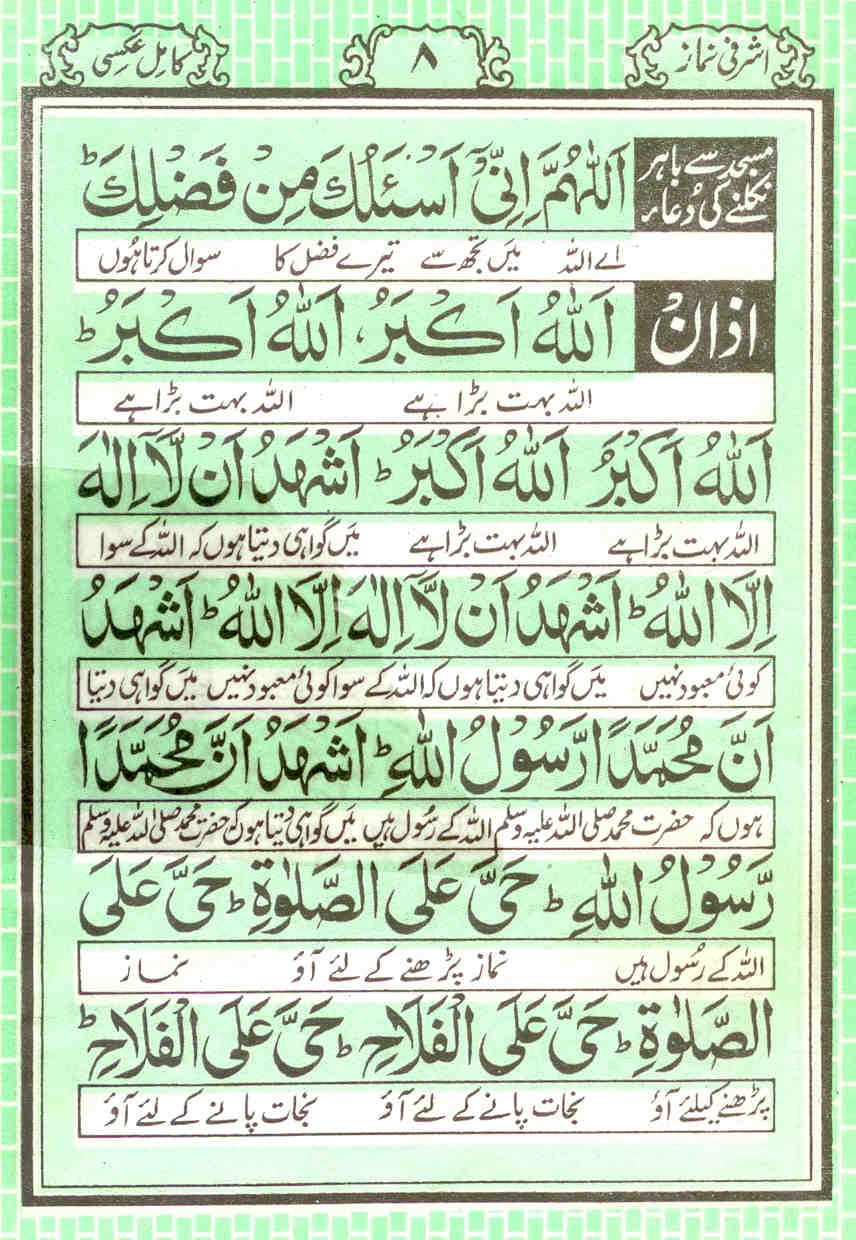 اشرفی نماز ۸ کامل عکسی
مسجد سے باہر
نکلنے کی دُعاء
اَللّٰهُمَّ اِنِّیْٓ اَسْئَلُكَ مِنْ فَضْلِكَ ؕ
اے اللہ میَں تجھ سے تیرے فضل کا سوال کرتا ہُوں
اذانْ
اَللّٰهُ اَكْبَرُ، اَللّٰهُ اَكْبَرُ ؕ
اللہ بہت بڑا ہے اللہ بہت بڑا ہے
اَللّٰهُ اَكْبَرُ اَللّٰهُ اَكْبَرُ ؕ اَشْهَدُ اَنْ لَّآ اِلٰهَ
اللہ بہت بڑا ہے اللہ بہت بڑا ہے میَں گواہی دیتا ہوں کہ اللہ کے سوا
اِلَّا اللّٰهُ ؕ اَشْهَدُ اَنْ لَّآ اِلٰهَ اِلَّا اللّٰهُ ؕ اَشْهَدُ
کوئی معبود نہیں میَں گواہی دیتا ہوں کہ اللہ کے سوا کوئی معبود نہیں میَں گواہی دیتا
اَنَّ مُحَمَّدًا رَّسُوْلُ اللّٰهِ ؕ اَشْهَدُ اَنَّ مُحَمَّدًا
ہوں کہ حضرت محمد صلی اللہ علیہ وسلم اللہ کے رسُول ہیں میَں گواہی دیتا ہوں کہ حضرت محمد صلی اللہ علیہ وسلم
رَّسُوْلُ اللّٰهِ ؕ حَیَّ عَلَی الصَّلٰوةِ ؕ حَیَّ عَلَی
اللہ کے رسُول ہیں نماز پڑھنے کے لئے آؤ نماز
الصَّلٰوةِ ؕ حَیَّ عَلَی الْفَلَاحِ ؕ حَیَّ عَلَی الْفَلَاحِ ؕ
پڑھنے کیلئے آؤ نجات پانے کے لئے آؤ نجات پانے کے لئے آؤ